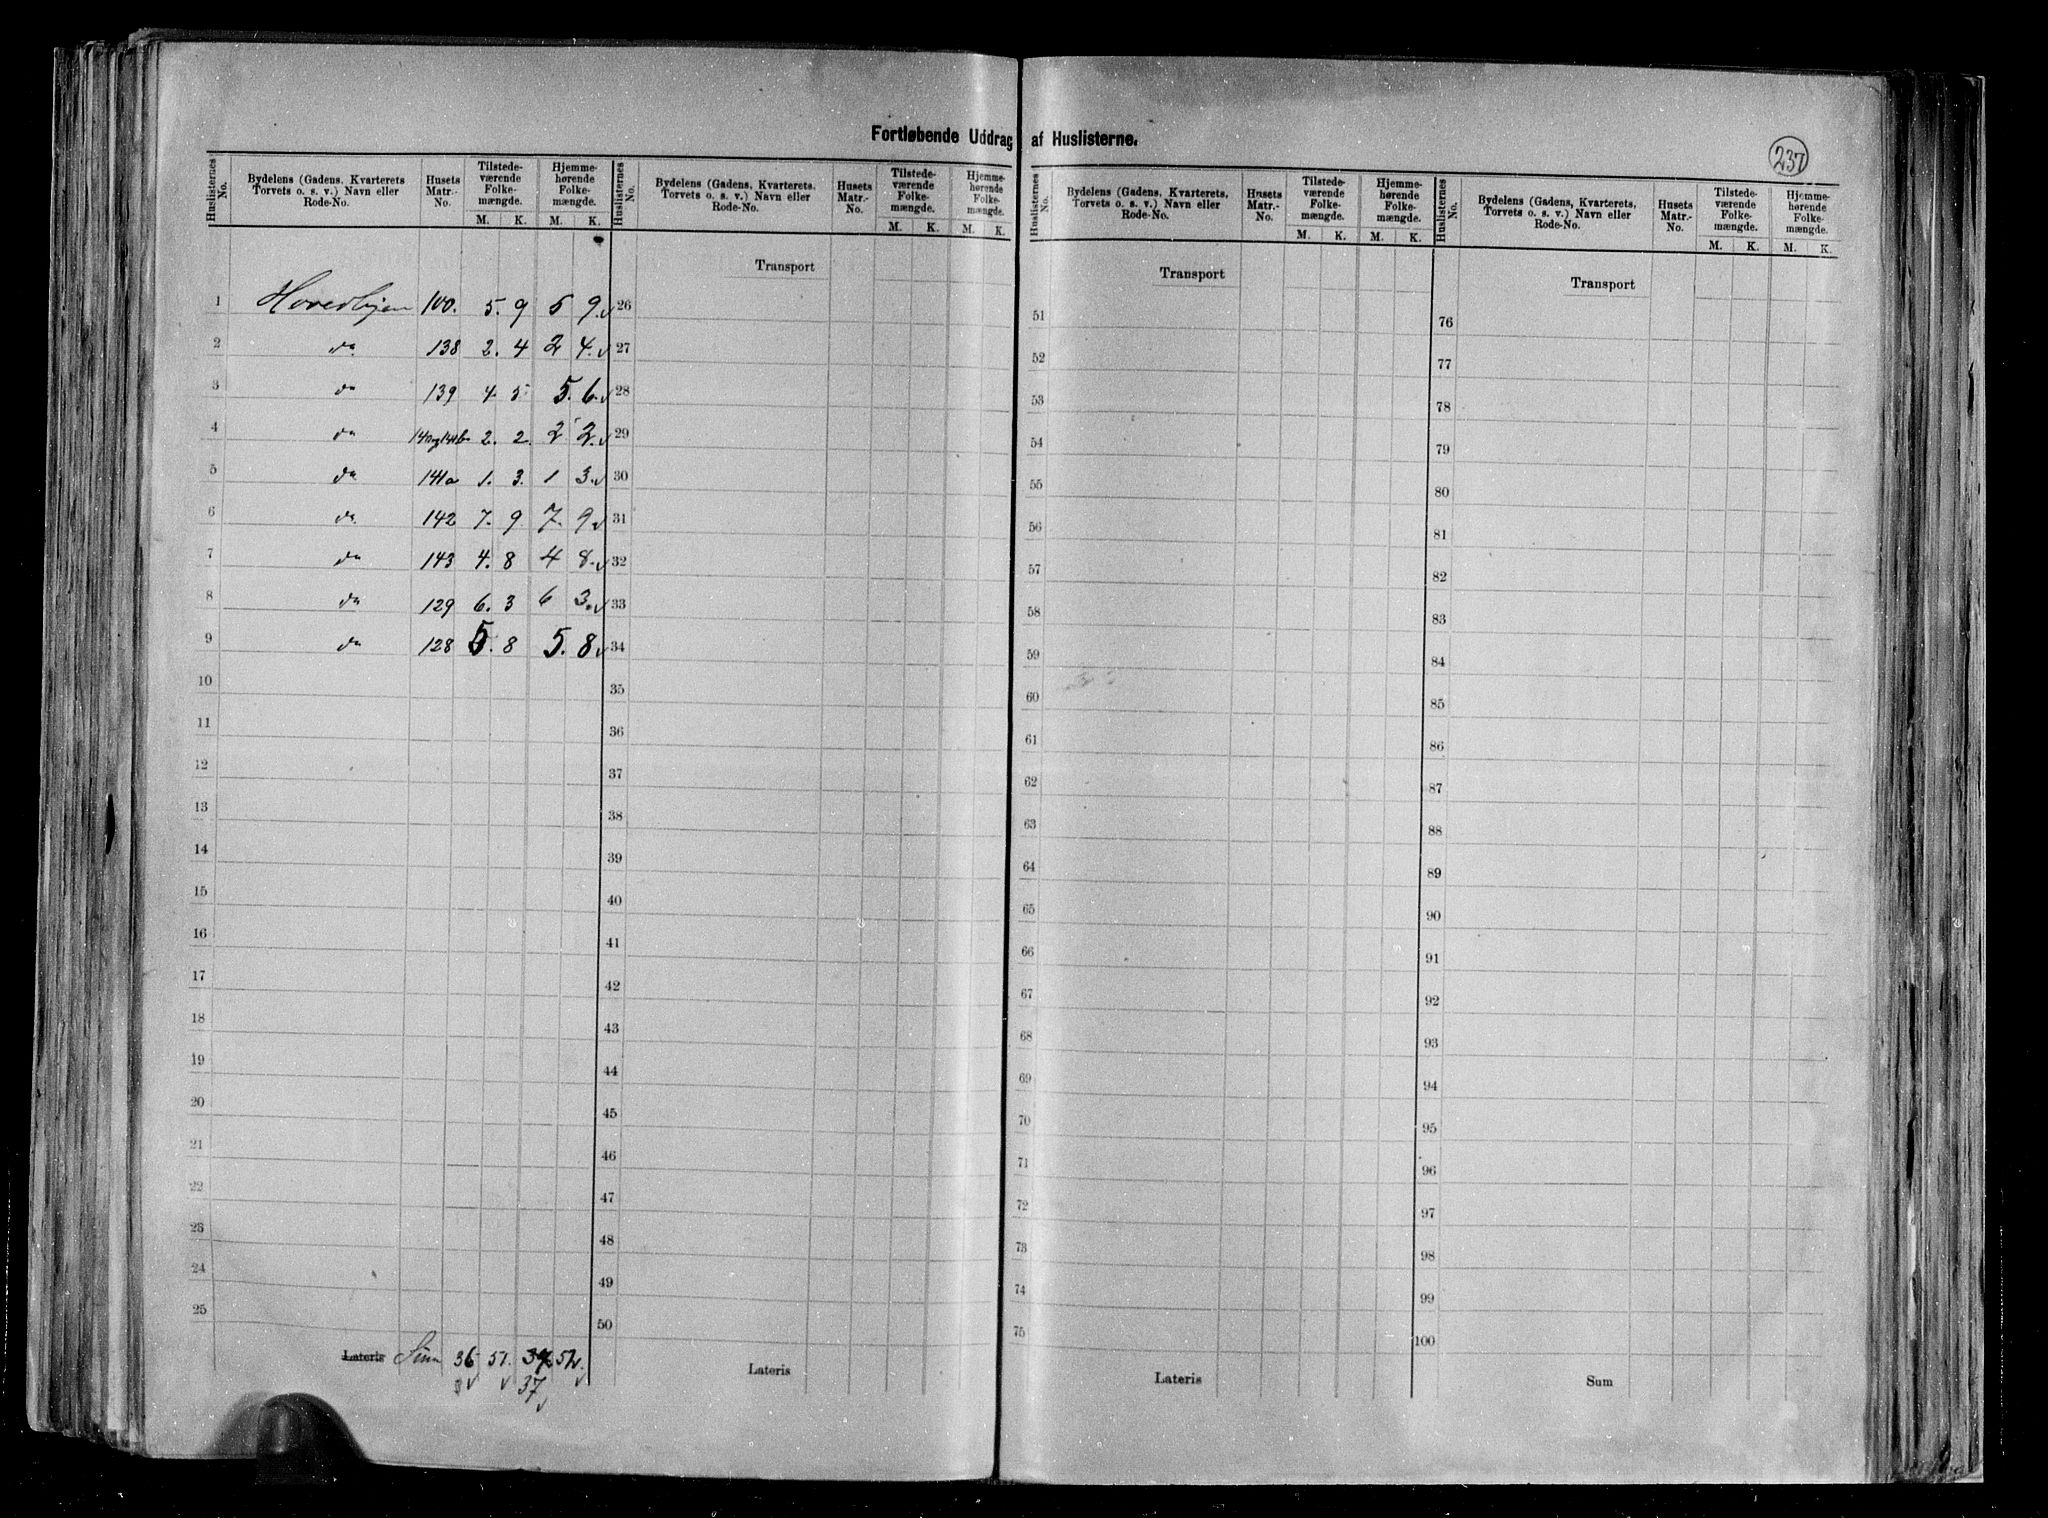 Fortløbende Uddrag af Huslisterne.
237
Huslisternes No. Bydelens (Gadens, Kvarterets Torvets o. s. v.) Navn eller Rode-No. Husets Matr.-No. Tilstede-værende Folke-mængde. M. K. Hjemme-hørende Folke-mængde. M. K.
Huslisternes No. Bydelens (Gadens, Kvarterets, Torvets o. s. v.) Navn eller Rode-No. Husets Matr.-No. Tilstede-værende Folke-mængde. M. K. Hjemme-hørende Folke-mængde. M. K.
Huslisternes No. Bydelens (Gadens, Kvarterets, Torvets o. s. v.) Navn eller Rode-No. Husets Matr.-No. Tilstede-værende Folke-mængde. M. K. Hjemme-hørende Folke-mængde. M. K.
Huslisternes No. Bydelens (Gadens, Kvarterets, Torvets o. s. v.) Navn eller Rode-No. Husets Matr.-No. Tilstede-værende Folke-mængde. M. K. Hjemme-hørende Folke-mængde. M. K.
Transport Transport Transport
1 Hovedbyen 100. 5. 9 5 9. 26 51 76
2 do 138 2. 4 2 4. 27 52 77
3 do 139 4. 5 5. 6. 28 53 78
4 do 2. 2. 2 2. 29 54 79
5 do 141a 1. 3. 1 3. 30 55 80
6 do 142 7. 9. 7. 9 31 56 81
7 do 143 4. 8 4 8. 32 57 82
8 do 129 6. 3 6 3. 33 58 83
9 do 128 5. 8 5. 8 34 59 84
10 35 60 85
11 36 61 86
12 37 62 87
13 38 63 88
14 39 64 89
15 40 65 90
16 41 66 91
17 42 67 92
18 43 68 93
19 44 69 94
20 45 70 95
21 46 71 96
22 47 72 97
23 48 73 98
24 49 74 99
25 50 75 100
Lateris Sum 36 51. 52. Lateris Lateris Sum
37